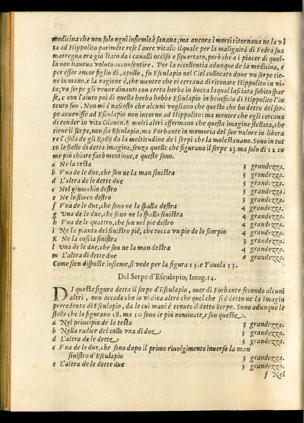 medicina che non solo ogni infirmità sanava, ma ancora i morti ritornava ne la vi
ta ad Hippolito parimēte rese l'aure vitali: il quale per la malignità di Fedra sua
matregna era già stato da i cavalli occiso e squartato, però che a i piacer di quel-
la non haueua voluto acconsentire. Per la eccellentia adunque de la medicina, e
per esser ancor figlio di Apollo, fu Esculapio nel Ciel collocato doue un serpe tie-
ne in mano, e la ragione è, che mentre ei cercaua di ritornare Hippolito in vi-
ta, un serpe gli venne dinanti con certa herba in bocca la qual lasciata subito spar-
se, e con l'aiuto poi di quella herba hebbe Esculapio in beneficio di Hippolito l'in
tento suo. Non mi è nascosto che alcuni vogliano che questo che ho detto del ser-
pe auuenisse ad Esculapio non intorno ad Hippolito: ma mentre che egli cercaua
di render in vita Glauco. E molti altri affermano che questa imagine stellata, che
tiene il serpe, non sia Esculapio, ma Forbante in memoria del suo valore in libera
re l'isola de gli Rodi da la moltitudine de i serpi che la molestauano. Sono in tut
to le stelle di detta imagine, senza quelle che figurano il serpe 13. ma solo di 12 co
me più chiare farò mentione, e queste sono.
a Ne la testa 3 grandezza.
b Vna de le due, che son ne la man sinistra 3 grandezza.
d L'altra de le dette due 3 grandezza.
c Nel ginocchio destro 3 grandezza.
e Ne lo stinco destro 3 grandezza.
f Vna de le due, che sono ne la spalla destra 4 grandezza.
g Vna de le due, che son ne la spalla sinistra 4 grandezza.
h Vna de le quattro, che son nel piè destro 4 grandezza.
i Ne la pianta del sinistro piè, che tocca un piè de lo scorpio 4 grandezza.
K Ne la coscia sinistra 3 grandezza.
l Vna de le due, che son ne la man destra 4 grandezza.
m L'altra de le dette due 4 grandezza.
Come sien disposte insieme, si vede per la figura 13. e Tauola 13.
Del Serpe d'Esculapio, Imag. 14.
Di questa figura detta il serpe d'Esculapio, ouer di Forbante secondo alcuni
altri, non accade che io vi dica altro che quel che si è detto ne la imagin
precedente di Esculapio, da le cui mani è tenuto il detto Serpe. Sono adunque le
stelle che lo figurano 18. ma 10 sono le più nominate, e son quelle.
a Nel principio de la testa 3 grandezza.
b Nella radice del collo vna di due 3 grandezza.
d L'altra de le dette 3 grandezza.
c Vna de le due, che sono dopo il primo riuolgimento inuerso la man
sinistra d'Esculapio 3 grandezza.
e L'altra de le dette due 3 grandezza.
f Nel